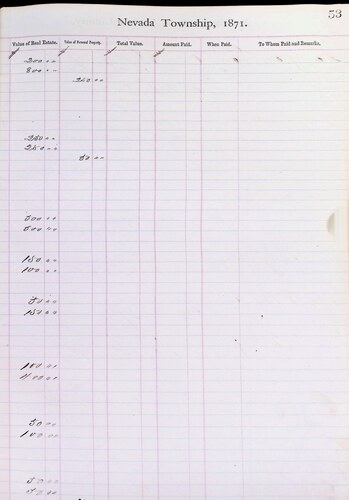 53
Nevada Township, 1871.
Value of Real Estate. Value of Personal Property. Total Value. Amount Paid. When Paid. To Whom Paid and Remarks.
200 00
800 00
350 00
250 00
50 00
500 00
500 00
150 00
100 00
50 00
150 00
100 00
50 00
100 00